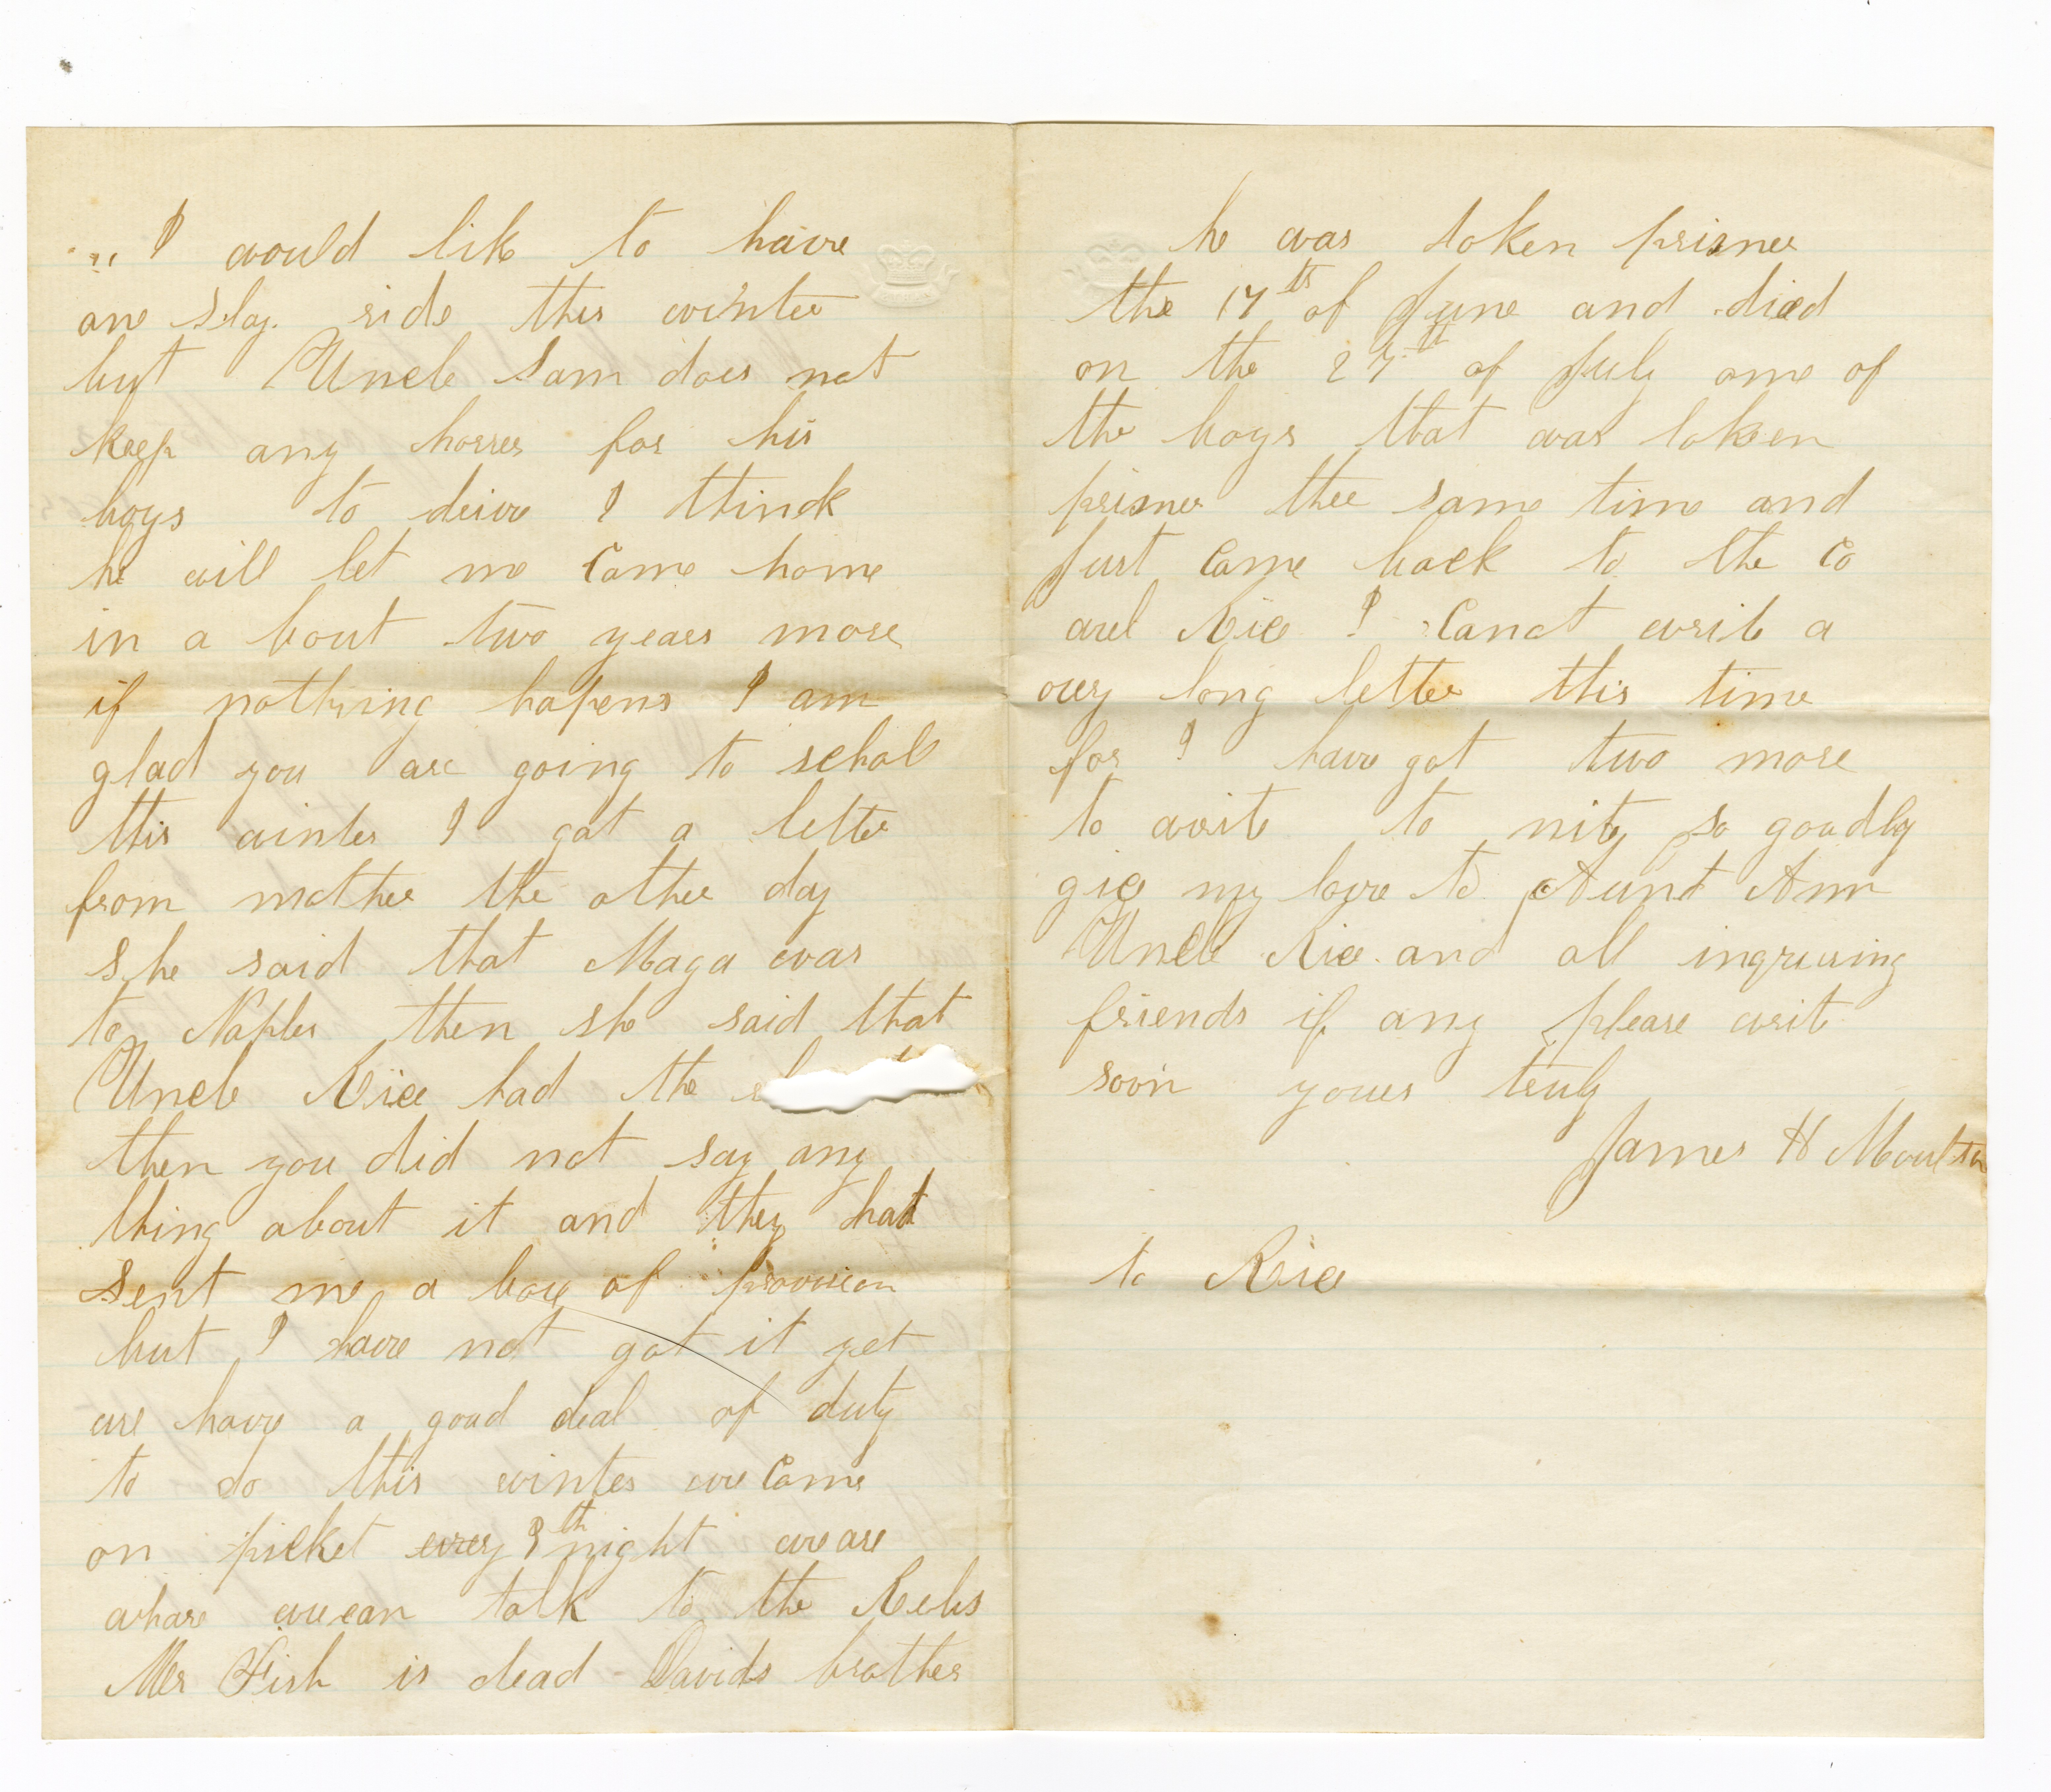 I would like to have
one Slay ride this winter
but Uncle Sam does not
keep any horses for his
boys to drive I think
he will let me Come home
in a bout two years more
if nothing hapens I am
glad you are going to schol
this winter I got a letter
from mother the other day
She said that Maga was
to Naples then she said that
Uncle Rice had the
then you did not say any
thing about it and they had
Sent me a box of provision
but I have not got it yet
we have a good deal of duty
to do this winter we Come
on picket every night we are
whare we can talk to the Rebs
Mr Fish is dead Davids brother
he was token prisner
the 17th of June and died
on the 27th of July one of
the boys that was token
prisner thee same time and
Just Came back to the Co
well Rice I Canot write a
very long letter this time
for I have got two more
to write to nite so goodby
give my love to Aunt Ann
Uncle Rice and all ingruiring
friends if any please writ
soon yours truly
James H Moulton
to Rice